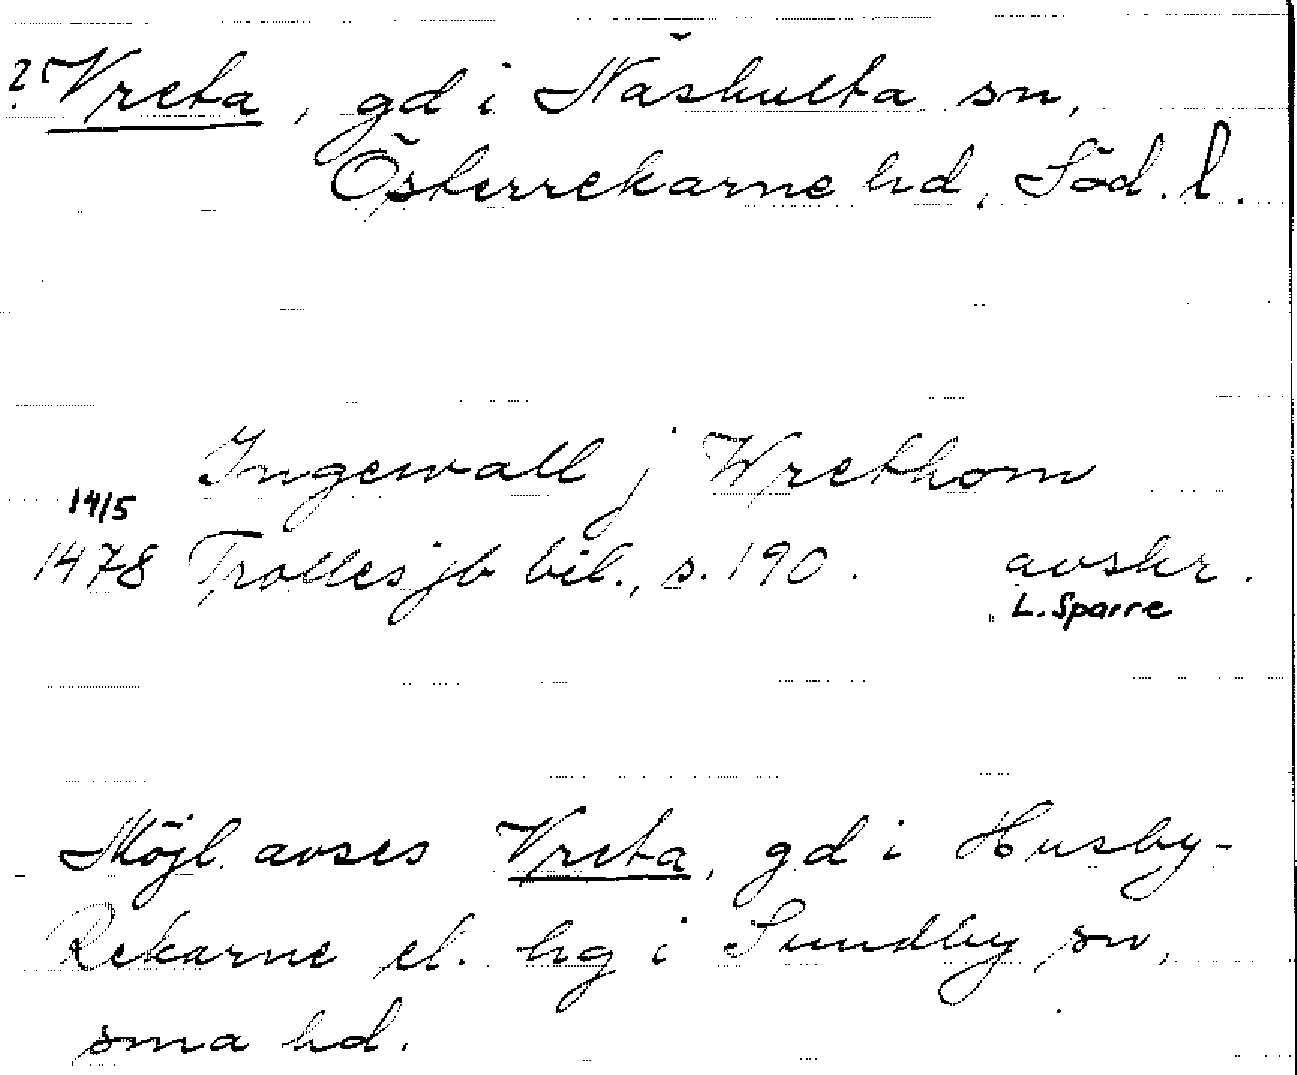 ? Vreta, gd i Näshulta sn,
Österrekarne hd, Söd. l.
Ingewall j Wrethom
14/5
1478 Trolles jb bil., s. 190. avskr.
L. Sparre
Möjl. avses Vreta, gd i Husby-
Rekarne el. hg i Sundby sn,
sma hd.